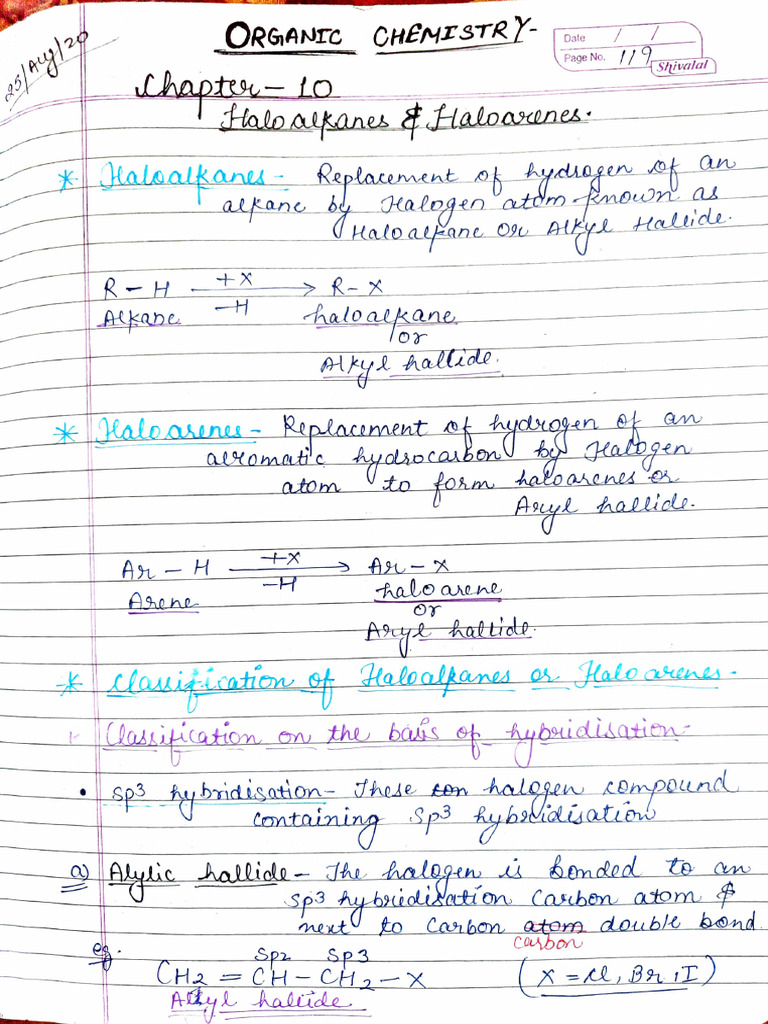 25/Aug/20
ORGANIC CHEMISTRY-
Date / /
Page No. 119
Shivalal
Chapter-10
Haloalkanes & Haloarenes.
* Haloalkanes- Replacement of hydrogen of an
alkane by Halogen atom known as
Haloalkane or Alkyl Hallide.
R-H +X → R-X
-H
Alkane haloalkane
or
Alkyl hallide.
* Haloarenes- Replacement of hydrogen of an
aeromatic hydrocarbon by Halogen
atom to form haloarenes or
Aryl hallide.
Ar-H +X → Ar-X
-H
Arene haloarene
or
Aryl hallide.
* Classification of Haloalkanes or Haloarenes-
1. Classification on the basis of hybridisation-
• sp3 hybridisation- These halogen compound
containing sp3 hybridisation
a) Alylic hallide- The halogen is bonded to an
sp3 hybridisation carbon atom &
next to carbon atom double bond.
carbon
eg. sp2 sp3
CH2=CH-CH2-X (X=Cl, Br, I)
Alyl hallide